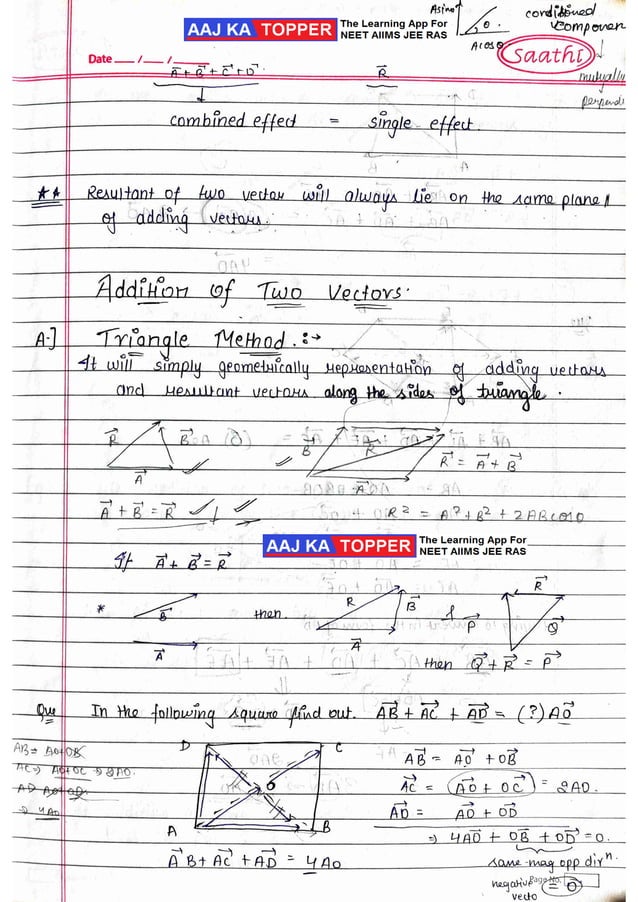 AAJ KA TOPPER The Learning App For NEET AIIMS JEE RAS
Asinθ θ Acosθ
conditioned
componen
mutually
perpendi
Date ___/___/___
Saathi
A⃗ + B⃗ + C⃗ + D⃗ R⃗
combined effect = single effect.
** Resultant of two vector will always lie on the same plane
of adding vectors.
Addition of Two Vectors.
A.] Triangle Method.:->
It will simply geometrically representation of adding vectors
and resultant vectors along the sides of triangle.
R⃗ B⃗ A⃗
B⃗ R⃗ A⃗ R⃗ = A⃗ + B⃗
A⃗ + B⃗ = R⃗ R² = A² + B² + 2ABcosθ
AAJ KA TOPPER The Learning App For NEET AIIMS JEE RAS
If A⃗ + B⃗ = R⃗
* B⃗ A⃗ then R B⃗ A⃗ P⃗ R⃗ Q⃗
then Q⃗ + R⃗ = P⃗
Que In the following square find out. AB⃗ + AC⃗ + AD⃗ = (?) AO⃗
AB = AO + OB
AC => AO + OC -> 2AO.
AD AO + OD
-> 4AO
D C O A B
AB⃗ = AO⃗ + OB⃗
AC⃗ = (AO⃗ + OC⃗) = 2AO.
AD⃗ = AO⃗ + OD⃗
=> 4AO⃗ + OB⃗ + OD⃗ = 0.
A⃗B + AC⃗ + AD⃗ = 4AO
same mag opp dirⁿ.
Page No.
negative
vecto = 0⃗